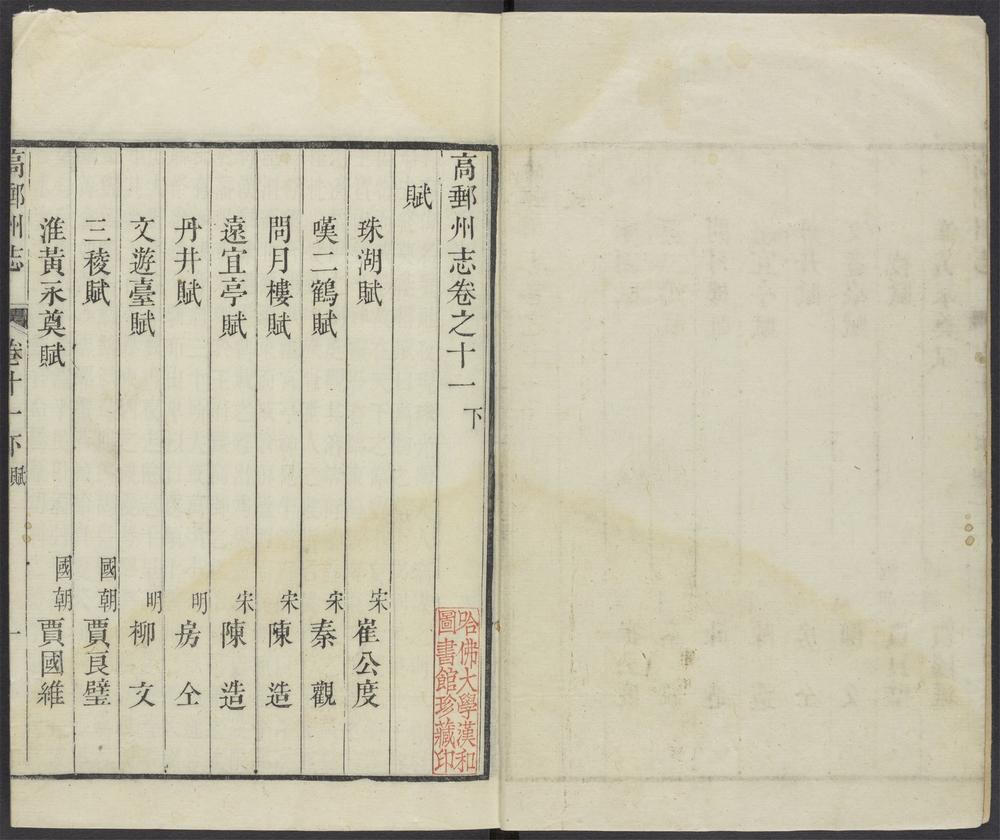 高郵州志卷之十一下
賦
珠湖賦 宋 崔公度
嘆二鶴賦 宋 秦觀
問月樓賦 宋 陳造
遠宜亭賦 宋 陳造
丹井賦 明 房仝
文遊臺賦 明 柳文
三稜賦 國朝 賈良璧
淮黃永奠賦 國朝 賈國維
高郵州志 卷十一下 賦 一
哈佛大學漢和
圖書館珍藏印